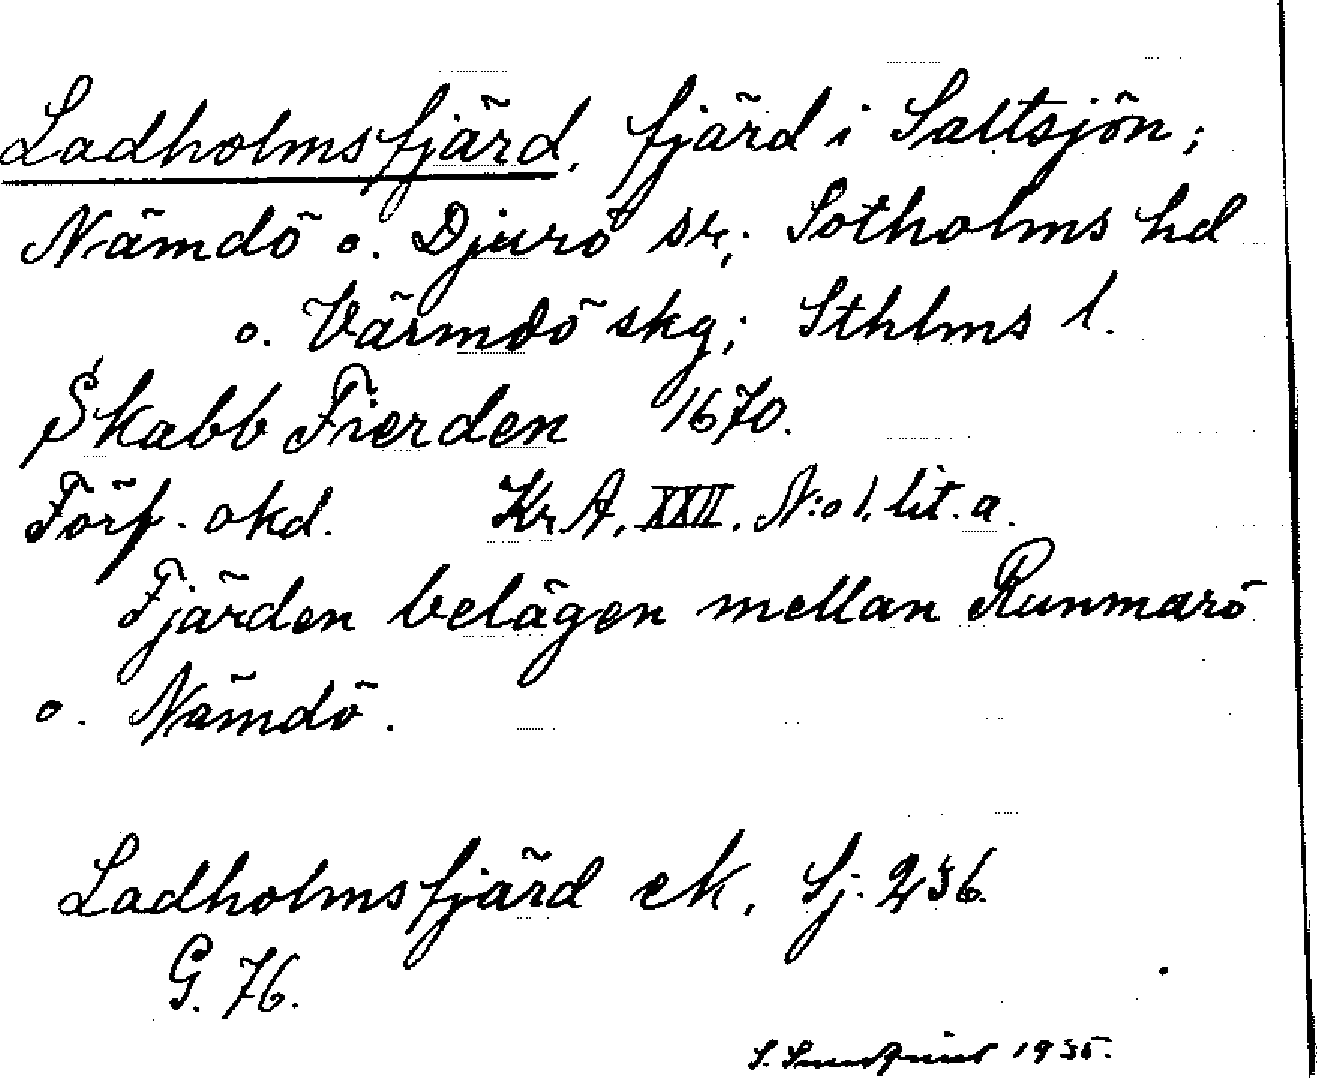 Ladholmsfjärd, fjärd i Saltsjön;
Nämdö o. Djurö sr; Sotholms hd
o. Värmdö skg; Sthlms l.
Skabb Fierden 1670.
Förf. okd. Kr. A. XXII. N:o 1. lit. a.
Fjärden belägen mellan Runmarö
o. Nämdö.
Ladholmsfjärd ek. Sj. 236.
G. 76.
S. 1935.